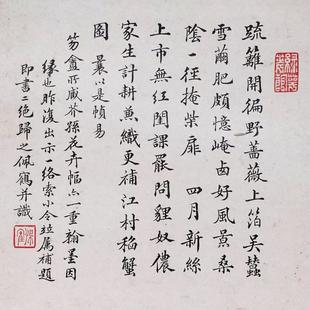 疏籬開徧野薔薇上箔吳蠶
雪繭肥頗憶崦西好風景桑
陰一徑掩柴扉 四月新絲
上市無紅閨課罷問貍奴儂
家生計耕兼織更補江村稻蟹
圖 曩以是幀易
笏盦所藏芥孫花卉幅亦一重翰墨因
緣也昨復出示一絡索小令並属補題
即書二絕歸之佩鶴并識